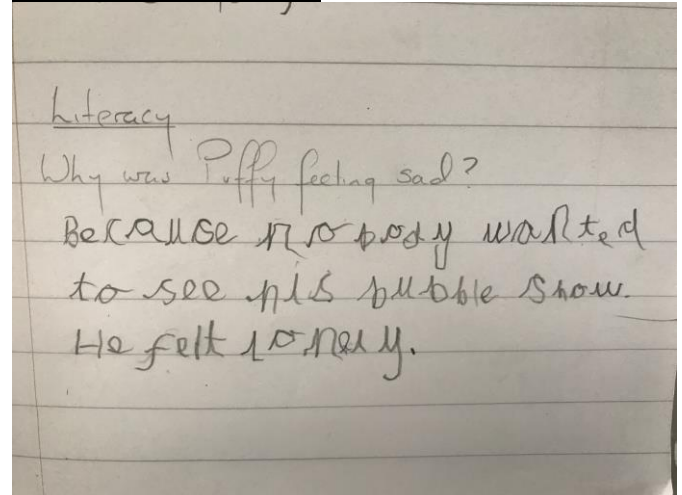 Literacy
Why was Puffy feeling sad?
Because nobody wanted
to see his bubble show.
He felt lonely.